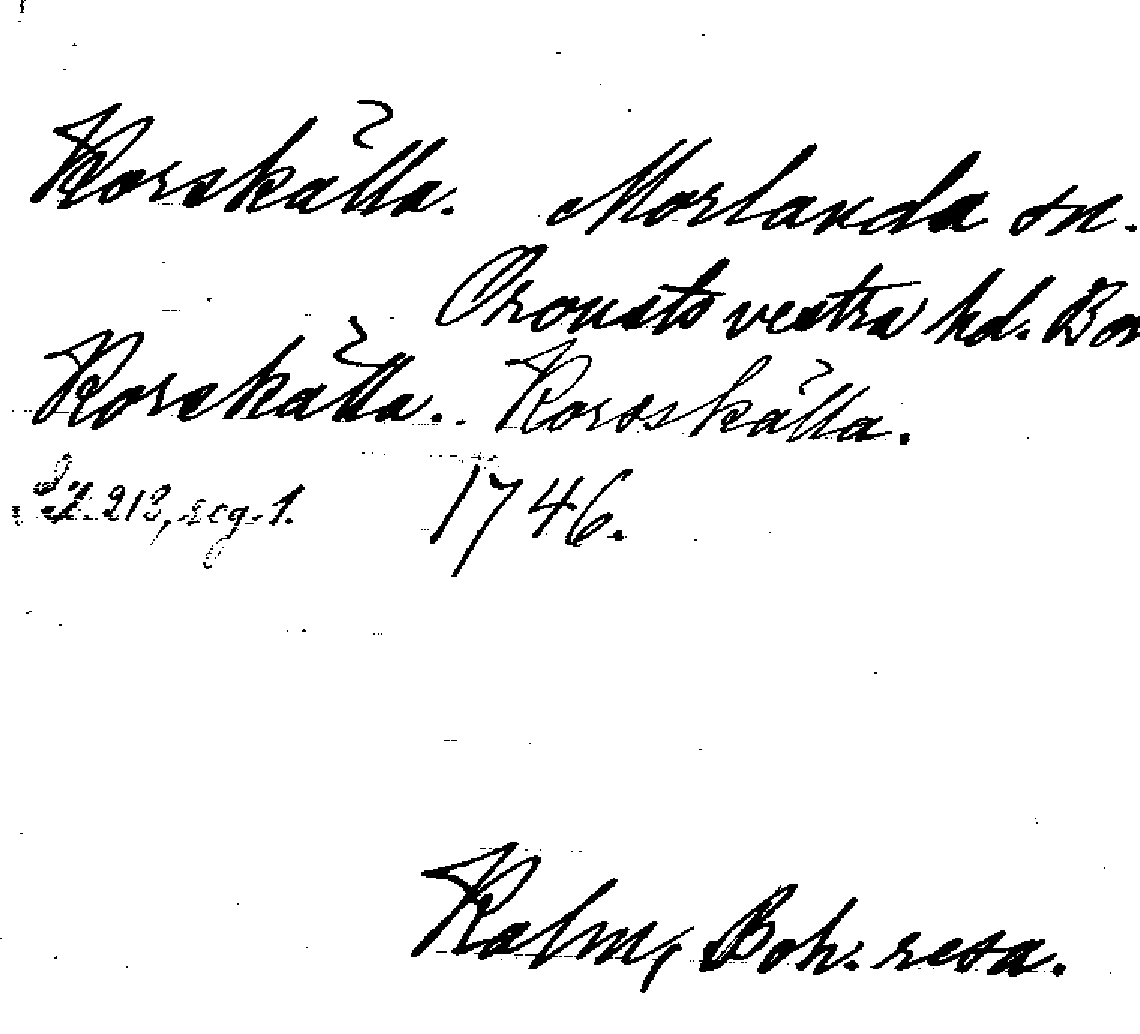 Korskälla. Morlanda sn.
Orousts vestra hd. Boh
Korskälla. Korsskälla.
S. 213, seg. 1. 1746.
Kalm, Boh. resa.